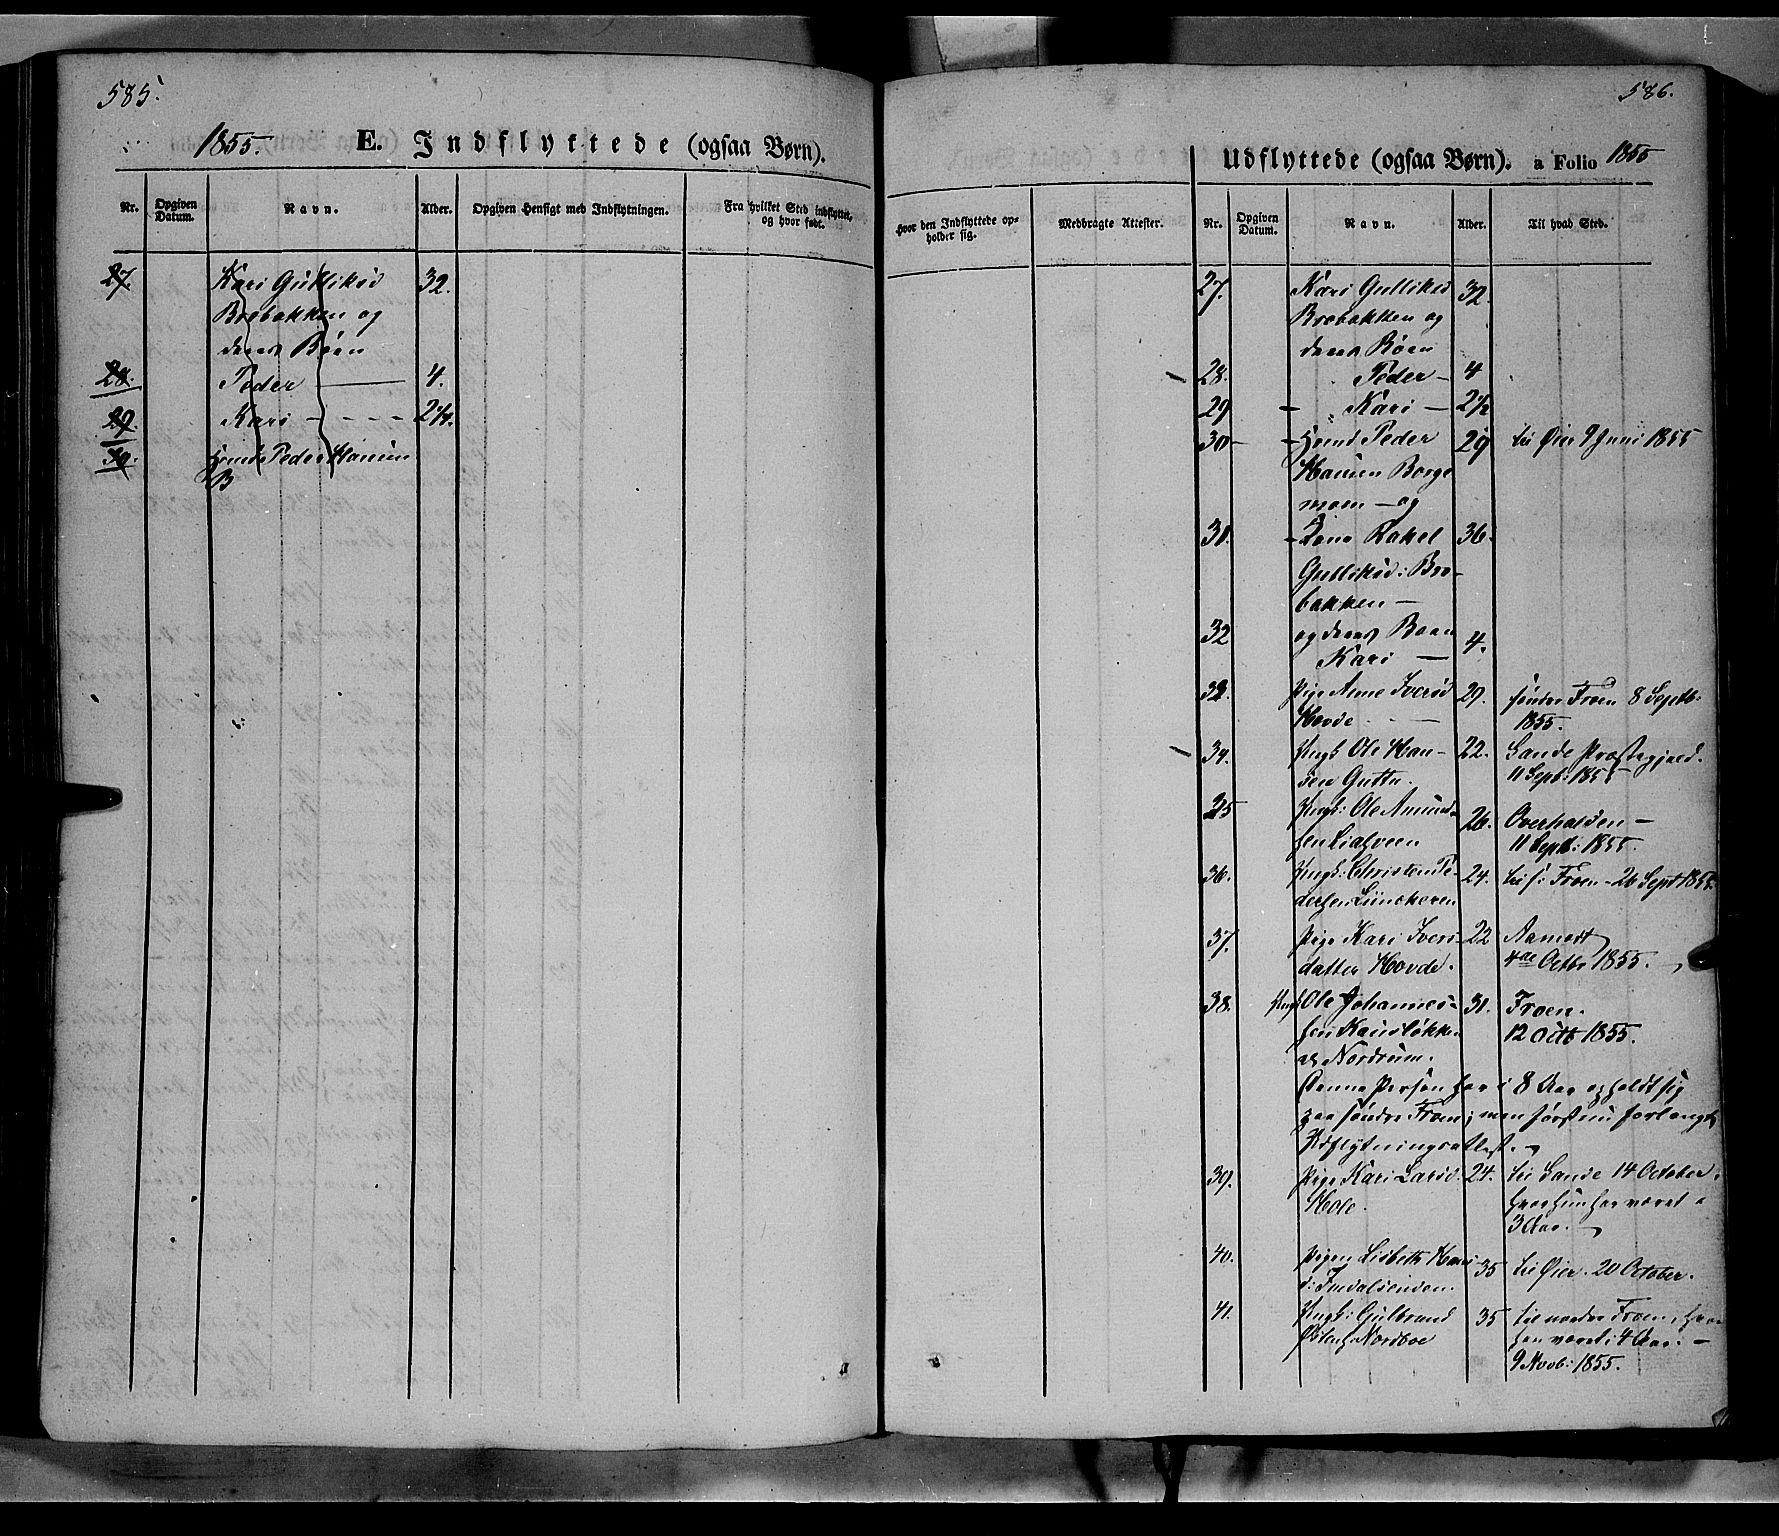 585.
1855. E. Indflyttede (ogsaa Børn).
Nr. Opgiven Datum. Navn. Alder. Opgiven Hensigt med Indflytningen. Fra hvilket Sted indflyttet, og hvor født.
27. Kari Gulliksd 32.
Brobakken og
dennes Børn
28. Peder — 4.
29. Kari - - - - 2½.
30. Peder Hansen
B
586.
Udflyttede (ogsaa Børn). a Folio 1855
Hvor den Indflyttede opholder sig. Medbragte Attester. Nr. Opgiven Datum. Navn. Alder. Til hvad Sted.
27. Kari Gulliksd 32.
Brobakken og
dennes Børn
28. Peder — 4
29 — " Kari — 2½
30 — Peder 29 til Øier 9 Juni 1855
Hansen Borge
moen — og
31. — Rakel 36.
Gulliksd: Bro-
bakken —
32 og dennes Barn
Kari — 4.
33. Pige Anne Iversd 29. søndre Froen 8 Septb:
Hovde - - — 1855.
34. Ungk Ole Han- 22. Lande Præstegjeld.
sen Guttu. 11 Sept: 1855
35 Ungk: Ole Amund- 26. Overhalden —
sen 11 Septb: 1855.
36. Ungk: Christen Pe- 24. til s: Froen - 26 Sept 1855.
dersen
37. Pige Kari Ivers- 22 Aamodt
datter Hovde. 4de Octbr 1855.
38. Ungk Ole Johannes- 31. Froen.
sen 12 Octb 1855.
Nordrum.
Denne Person har i 8 Aar opholdt sig
paa søndre Froen; men først nu forlangt
Udflytningsattest.
39. Pige Kari Larsd. 24. til Lande 14 October,
Hole. hvor hun har været i
3 Aar.
40. Pigen Lisbeth Hans 35 til Øier. 20 October.
d:
41. Ungk: Gulbrand 35 til nordre Froen, hvor
Nordboe han været i 4 Aar. —
9 Novb: 1855.